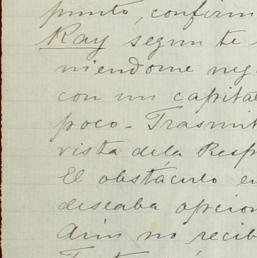 punto, confirm
Ray segun te
niendome neg
con un capital
poco - Trasmit
vista dela Resp
El obstáculo en
deseaba opcion
Aún no recib